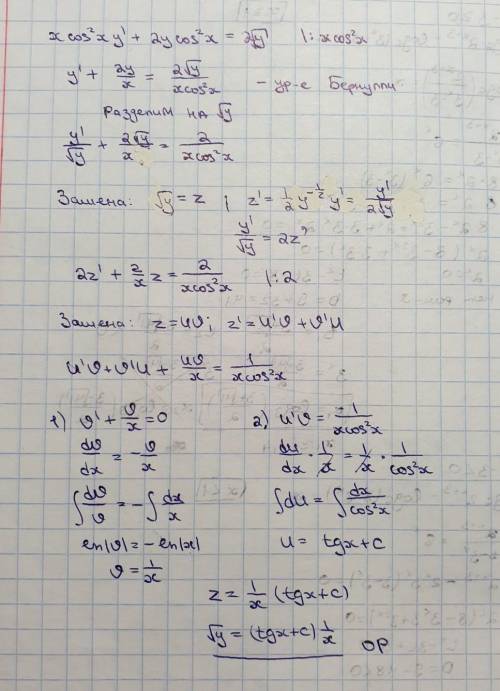 xcos²xy' + 2ycos²x = 2√y |: xcos²x
y' + 2y/x = 2√y/xcos²x - ур-е Бернулли
Разделим на √y
y'/√y + 2√y/x = 2/xcos²x
Замена: √y = z ; z' = 1/2 y^(-1/2) y' = y'/2√y
y'/√y = 2z'
2z' + 2/x z = 2/xcos²x |:2
Замена: z = uϑ; z' = u'ϑ + ϑ'u
u'ϑ + ϑ'u + uϑ/x = 1/xcos²x
1) ϑ' + ϑ/x = 0
dϑ/dx = -ϑ/x
∫dϑ/ϑ = -∫dx/x
ln|ϑ| = -ln|x|
ϑ = 1/x
2) u'ϑ = 1/xcos²x
du/dx · 1/x = 1/x · 1/cos²x
∫du = ∫dx/cos²x
u = tgx + c
z = 1/x (tgx + c)
√y = (tgx + c) 1/x ОР